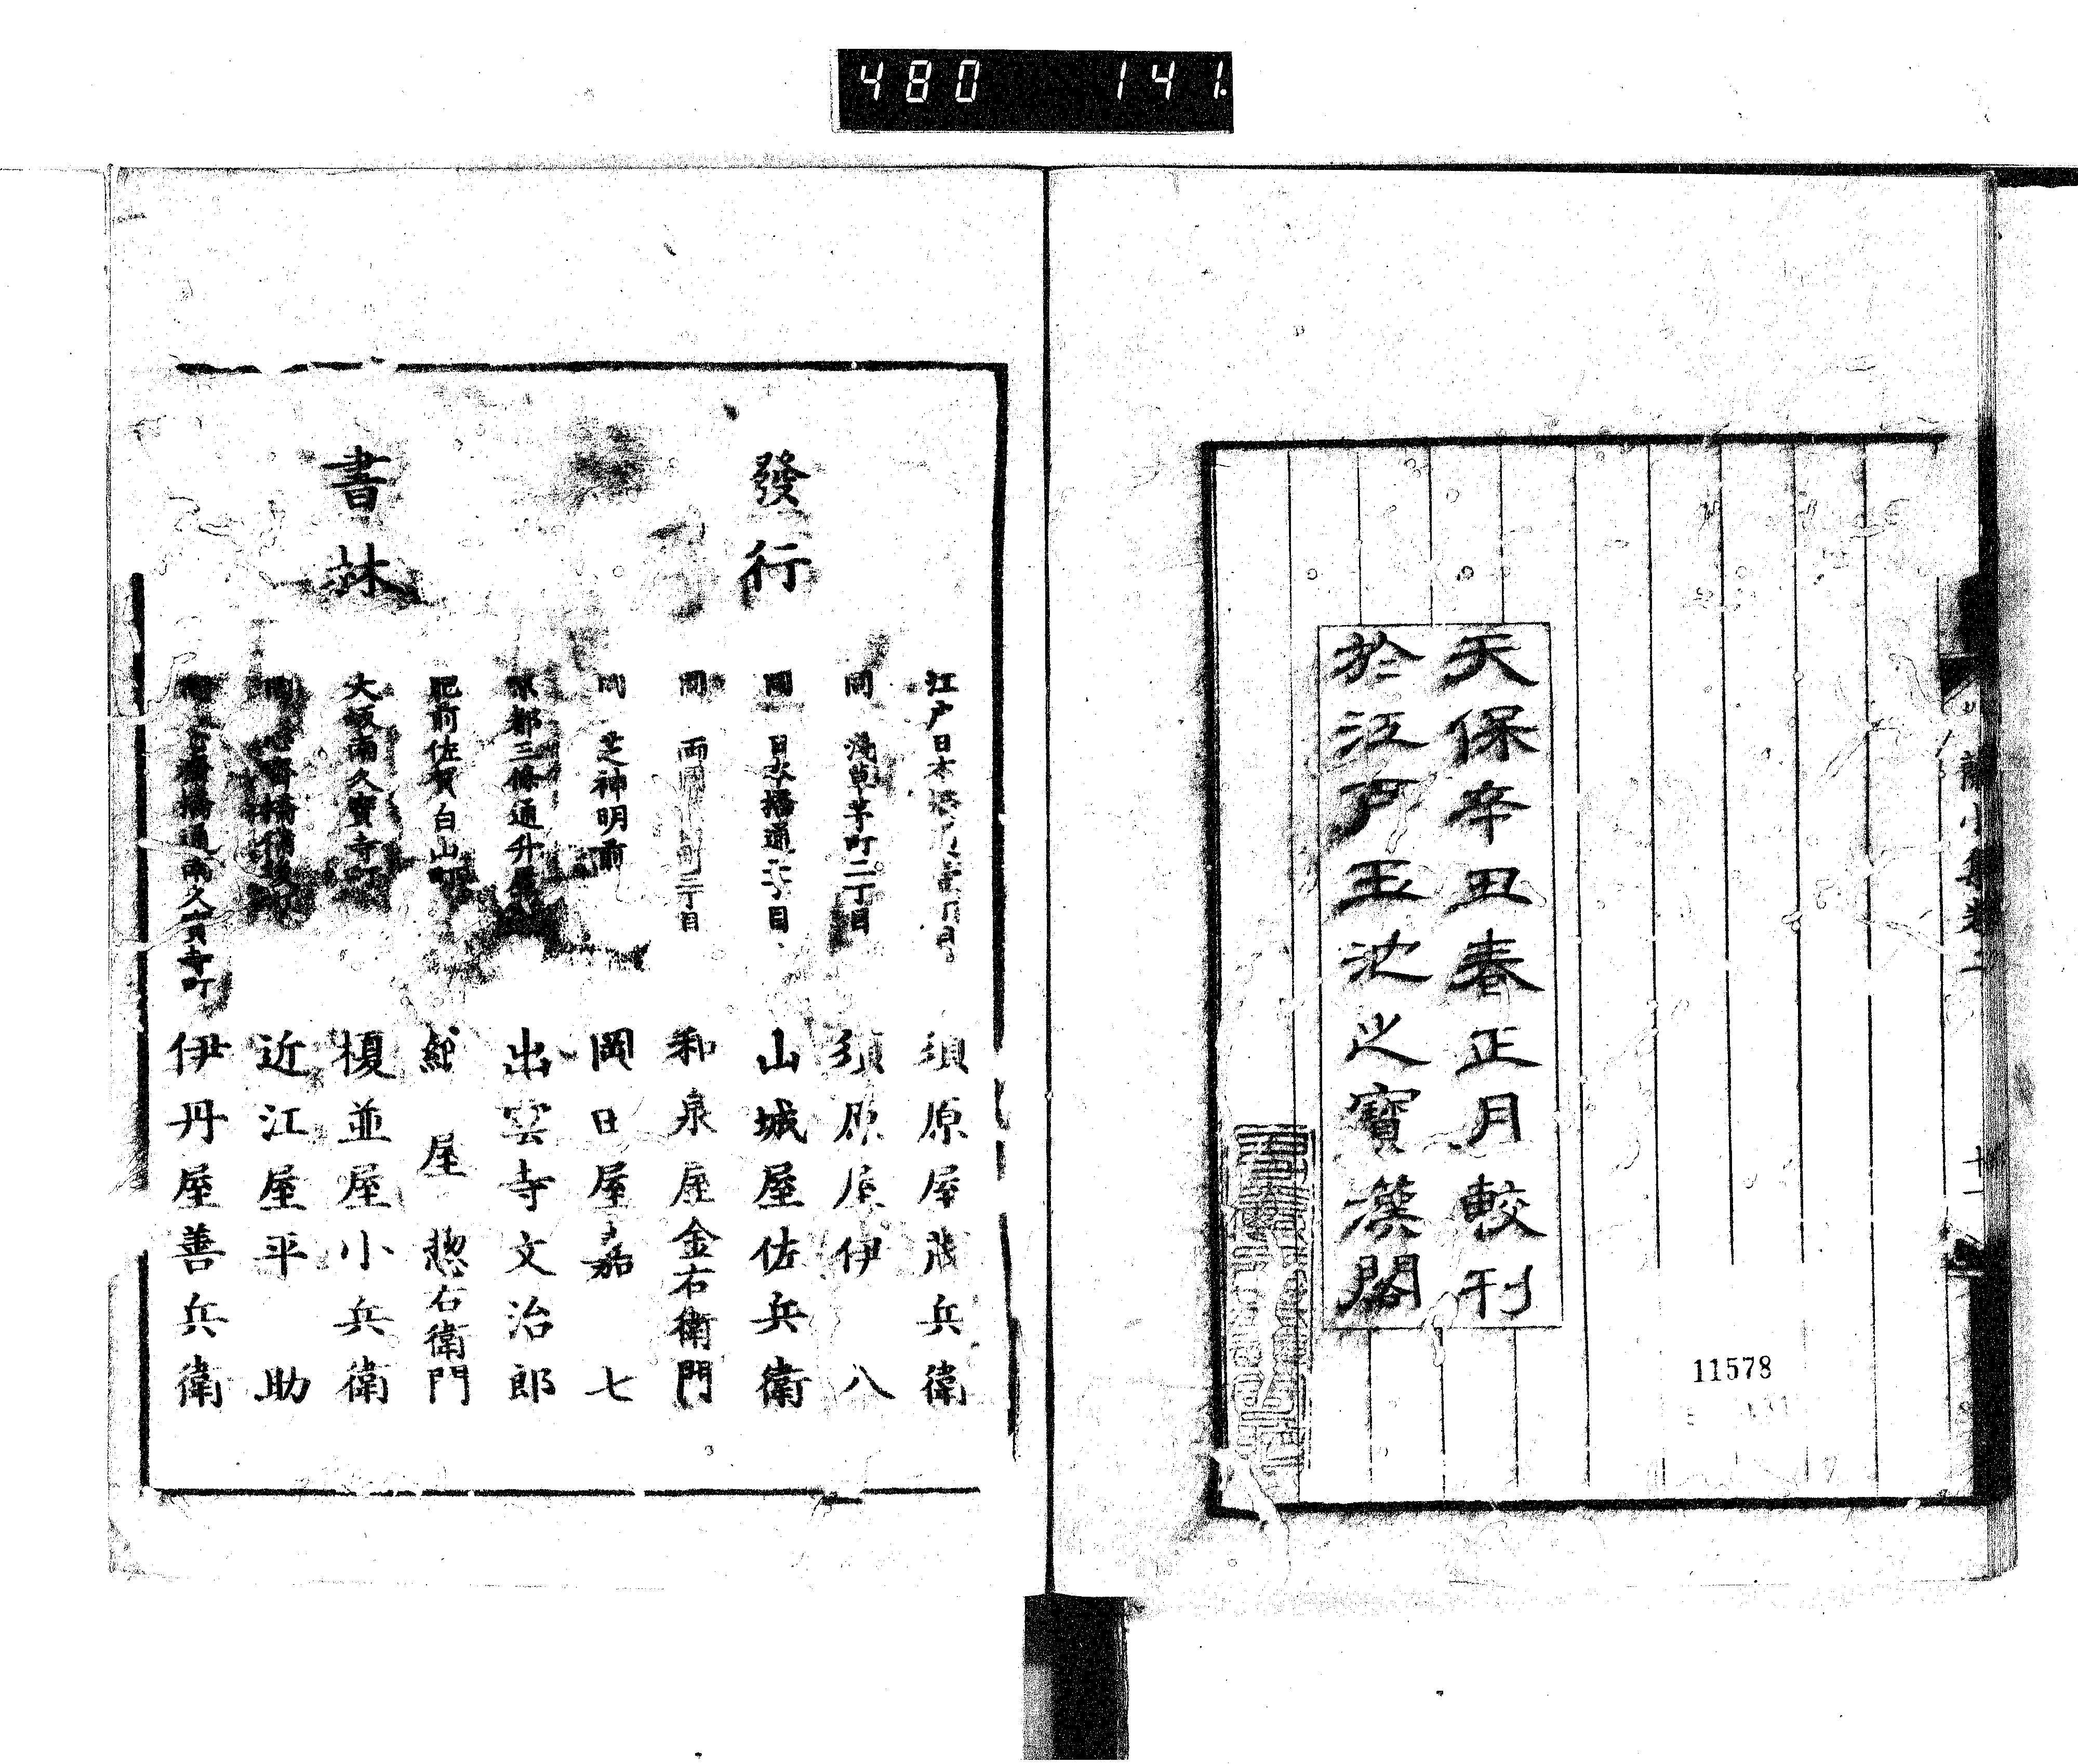 480 141.
天保辛丑春正月較刊
於江戸玉池之寶漢閣
11578
發行
書林
江戸日本橋 須原屋茂兵衛
同 浅草茅町二丁目 須原屋伊八
同 日本橋通二丁目 山城屋佐兵衛
同 両國 三丁目 和泉屋金右衛門
同 芝神明前 岡田屋嘉七
京都三條通升屋 出雲寺文治郎
肥前佐賀白山町 紙屋惣右衛門
大坂南久寶寺町 榎並屋小兵衛
同 齋橋 近江屋平助
同 齋橋通南久寶寺町 伊丹屋善兵衛